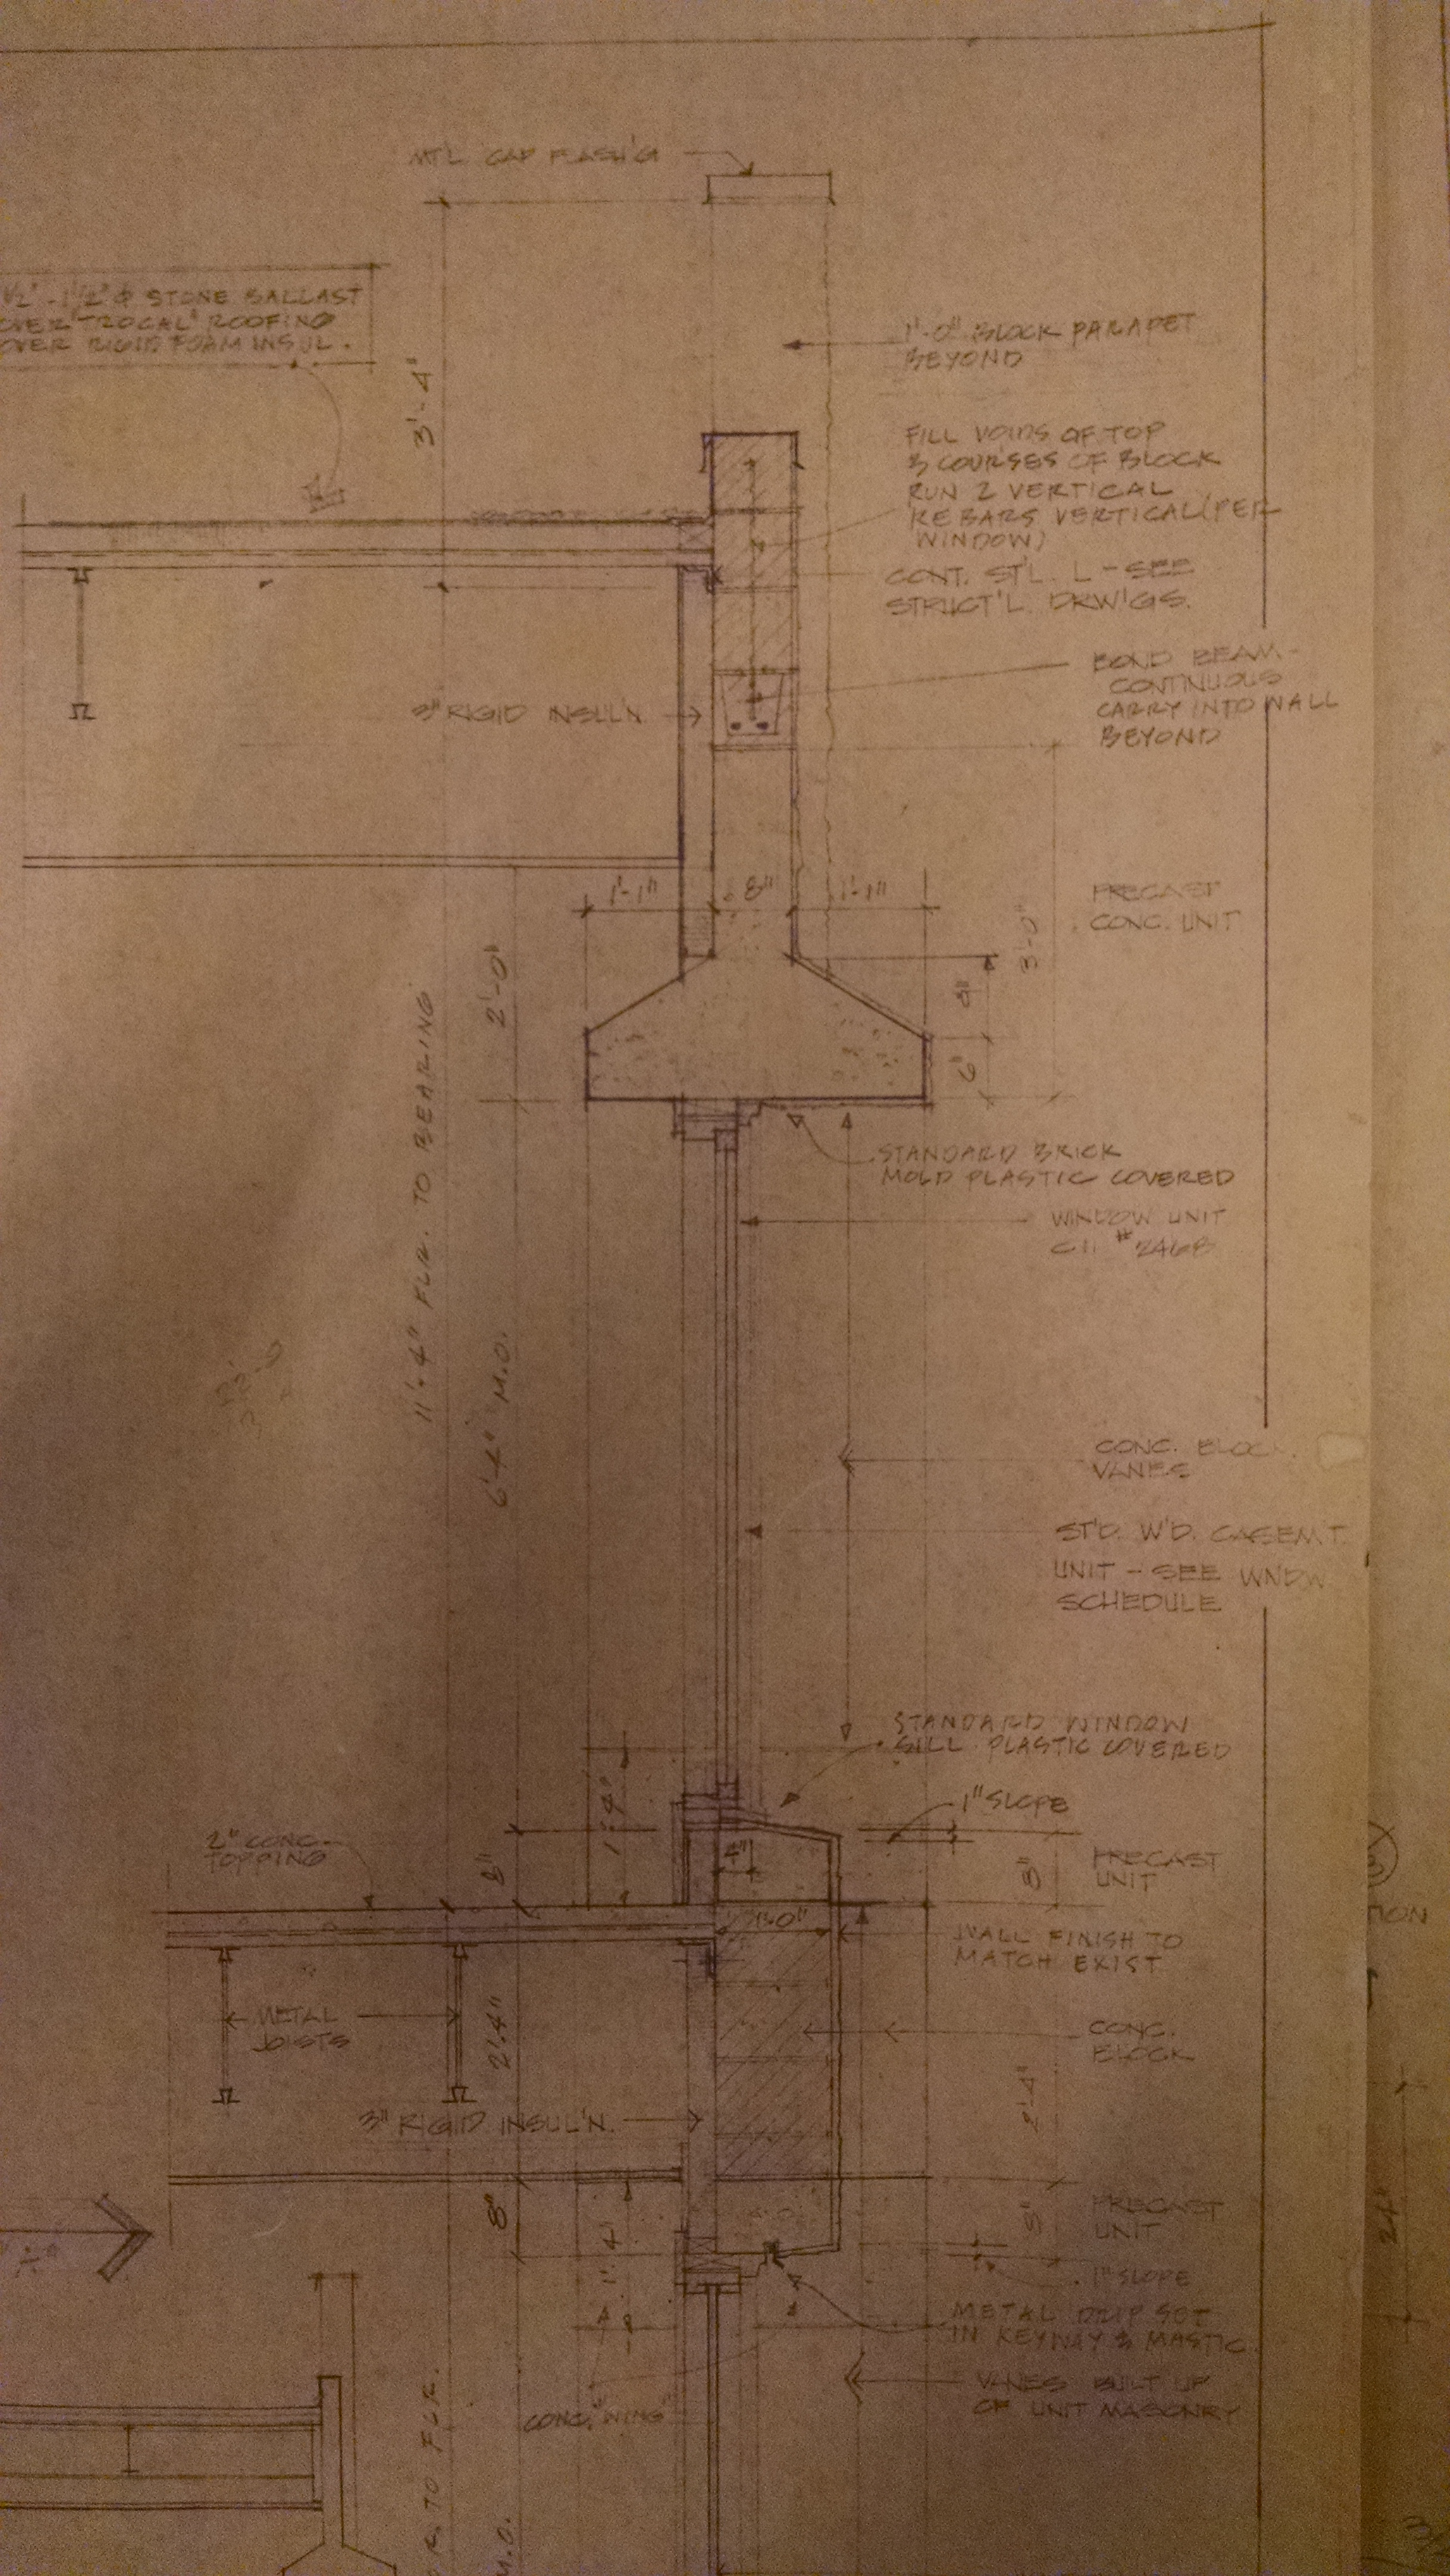 MT'L CAP FLASH'G
1/2" - 1 1/2" ⌀ STONE BALLAST
OVER "TROCAL" ROOFING
OVER RIGID FOAM INSUL.
3'-4"
1'-0" BLOCK PARAPET
BEYOND
FILL VOIDS OF TOP
3 COURSES OF BLOCK
RUN 2 VERTICAL
REBARS VERTICAL (PER
WINDOW)
CONT. ST'L. L - SEE
STRUCT'L. DRW'GS.
BOND BEAM -
CONTINUOUS
CARRY INTO WALL
BEYOND
3" RIGID INSUL'N
1'-1"
8"
1'-1"
PRECAST
CONC. UNIT
3'-0"
2'-0"
8"
6"
STANDARD BRICK
MOLD PLASTIC COVERED
WINDOW UNIT
C11 #2468
11'-4" FLR. TO BEARING
6'-4" M.O.
CONC. BLOCK
VANES
ST'D. W'D. CASEM'T.
UNIT - SEE WNDW
SCHEDULE
STANDARD WINDOW
SILL PLASTIC COVERED
1" SLOPE
1'-4"
2" CONC.
TOPPING
8"
4"
8"
PRECAST
UNIT
1'-0"
WALL FINISH TO
MATCH EXIST
METAL
JOISTS
2'-4"
CONC.
BLOCK
2'-4"
3" RIGID INSUL'N.
8"
1'-4"
8"
PRECAST
UNIT
1" SLOPE
METAL DRIP SET
IN KEYWAY & MASTIC
VANES BUILT UP
OF UNIT MASONRY
CONC. "WING"
R. TO FLR.
M.O.
TION
24"